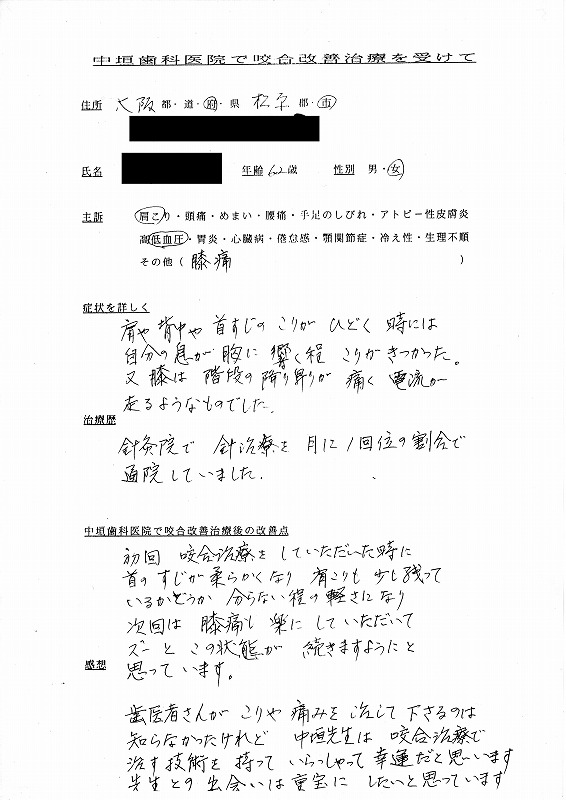 中垣歯科医院で咬合改善治療を受けて
住所 大阪 都・道・府・県 松原 郡・市
氏名 年齢 62歳 性別 男・女
主訴 肩こり・頭痛・めまい・腰痛・手足のしびれ・アトピー性皮膚炎
高低血圧・胃炎・心臓病・倦怠感・顎関節症・冷え性・生理不順
その他（膝痛）
症状を詳しく
肩や背中や首すじのこりがひどく時には
自分の息が胸に響く程こりがきつかった。
又膝は階段の降り昇りが痛く電流が
走るようなものでした。
治療歴
針灸院で針治療を月に1回位の割合で
通院していました.
中垣歯科医院で咬合改善治療後の改善点
初回 咬合治療をしていただいた時に
首のすじが柔らかくなり 肩こりも少し残って
いるかどうか分らない程の軽さになり
次回は膝痛も楽にしていただいて
ズーとこの状態が続きますようにと
感想 思っています。
歯医者さんがこりや痛みを治して下さるのは
知らなかったけれど 中垣先生は咬合治療で
治す技術を持っていらっしゃって幸運だと思います
先生との出会いは重宝にしたいと思っています